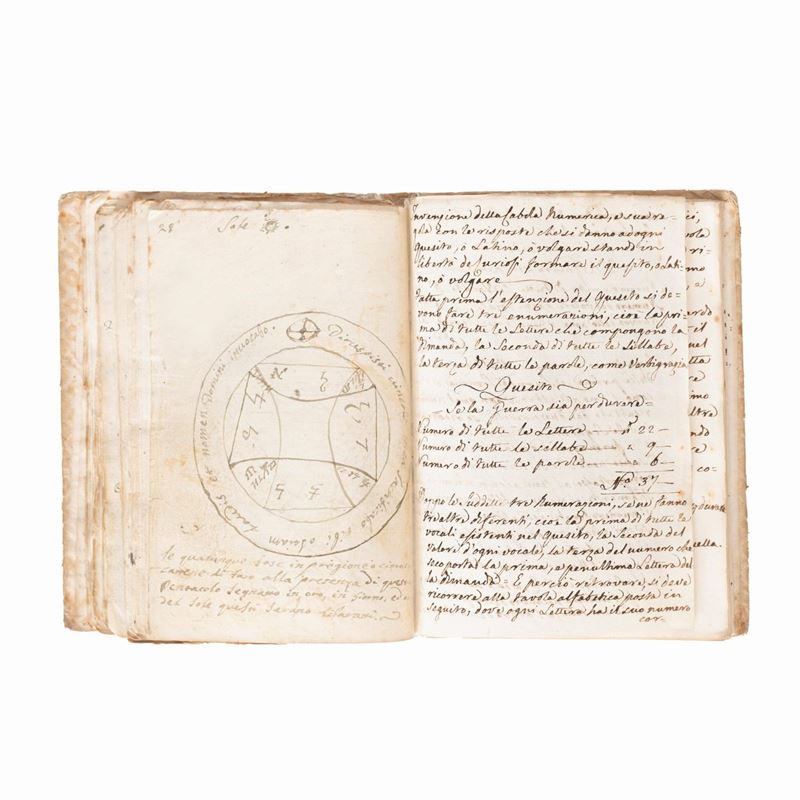 28
Sole
Dirupisti vincula
sacrificabo
tibi ostiam
laudis et nomen Domini invocabo.
Se qualunque fosse in prigione o
catene di faro alla presenza di questo
Pentacolo segnamo in oro, in giorno, ed
del Sole questi sarano
Invenzione della Cabola Numerica, e sua re=
gla con le risposte che si danno ad ogni
Quesito, ò Latino, ò volgare stando in
libertà de Curiosi formare il quesito, o lati
no, ò volgare
fatte prima l'estenzione del Quesito si de=
vono fare tre enumerazioni, cioè la pri
ma di tutte le Lettere che compongono la
dimanda, la Seconda di tutte le sillabe,
la terza di tutte le parole, come Verbigrazia
Quesito
Se la Guerra sia per durare=
Numero di tutte le Lettere — nº 22 —
Numero di tutte le sillabe — 9 —
Numero di tutte le parole — 6 —
Nº 37 —
Dopo le suddette tre Numerazioni, se ne fanno
tre altre diferenti, cioè la prima di tutte le
vocali esistenti nel Quesito, la Seconda del
valore d'ogni vocale, la terza del numero che
seco porta la prima, e penultima Lettera del
la dimanda= E perchè retrovare, si deve
ricorrere alla tavola alfabetica posta in
seguito, dove ogni Lettera ha il suo numero
cor=